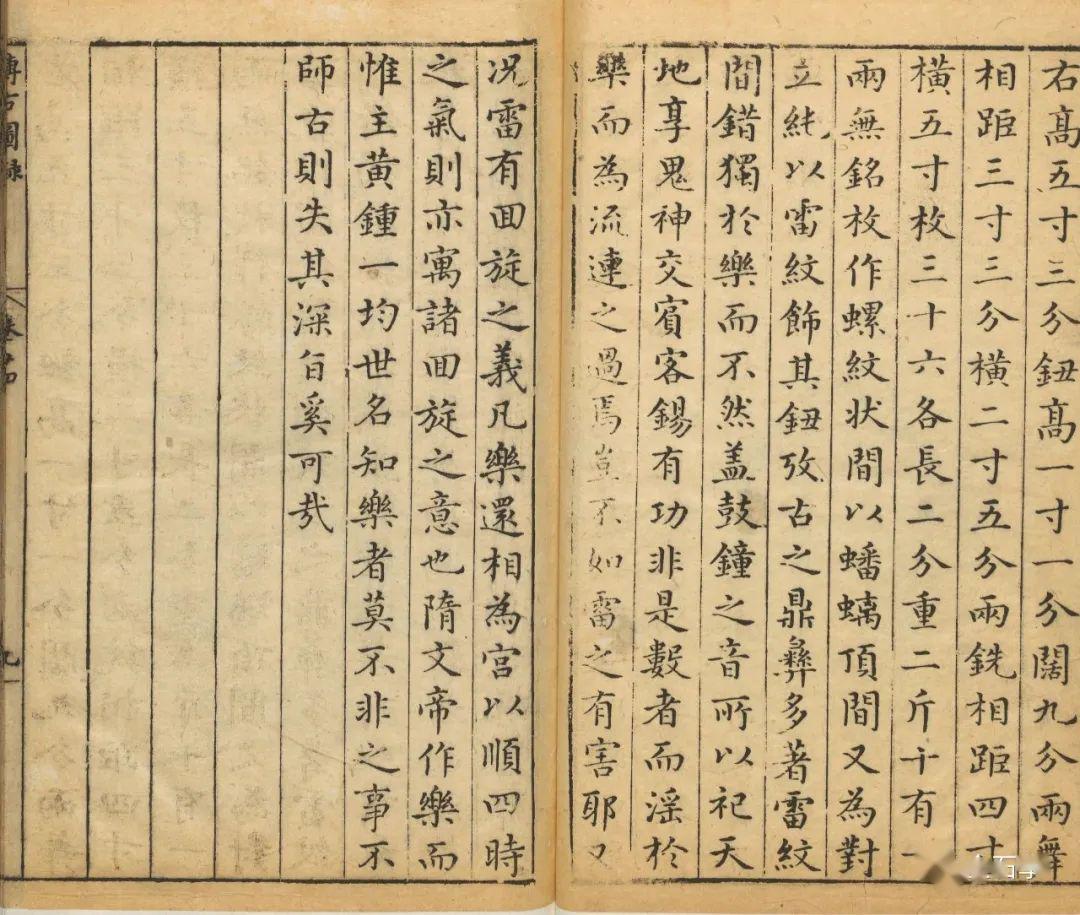 右髙五寸三分鈕髙一寸一分闊九分兩舞
相距三寸三分横二寸五分兩銑相距四寸
横五寸枚三十六各長二分重二斤十有一
兩無銘枚作螺紋状間以蟠螭頂間又為對
立純以雷紋飾其鈕攷古之鼎彝多著雷紋
間錯獨於樂而不然盖鼓鐘之音所以祀天
地享鬼神交賓客錫有功非是數者而淫於
樂而為流連之過焉豈不如雷之有害耶又
况雷有回旋之義凡樂還相為宮以順四時
之氣則亦寓諸回旋之意也隋文帝作樂而
惟主黄鍾一均世名知樂者莫不非之事不
師古則失其深旨奚可㢤
博古圖録
九